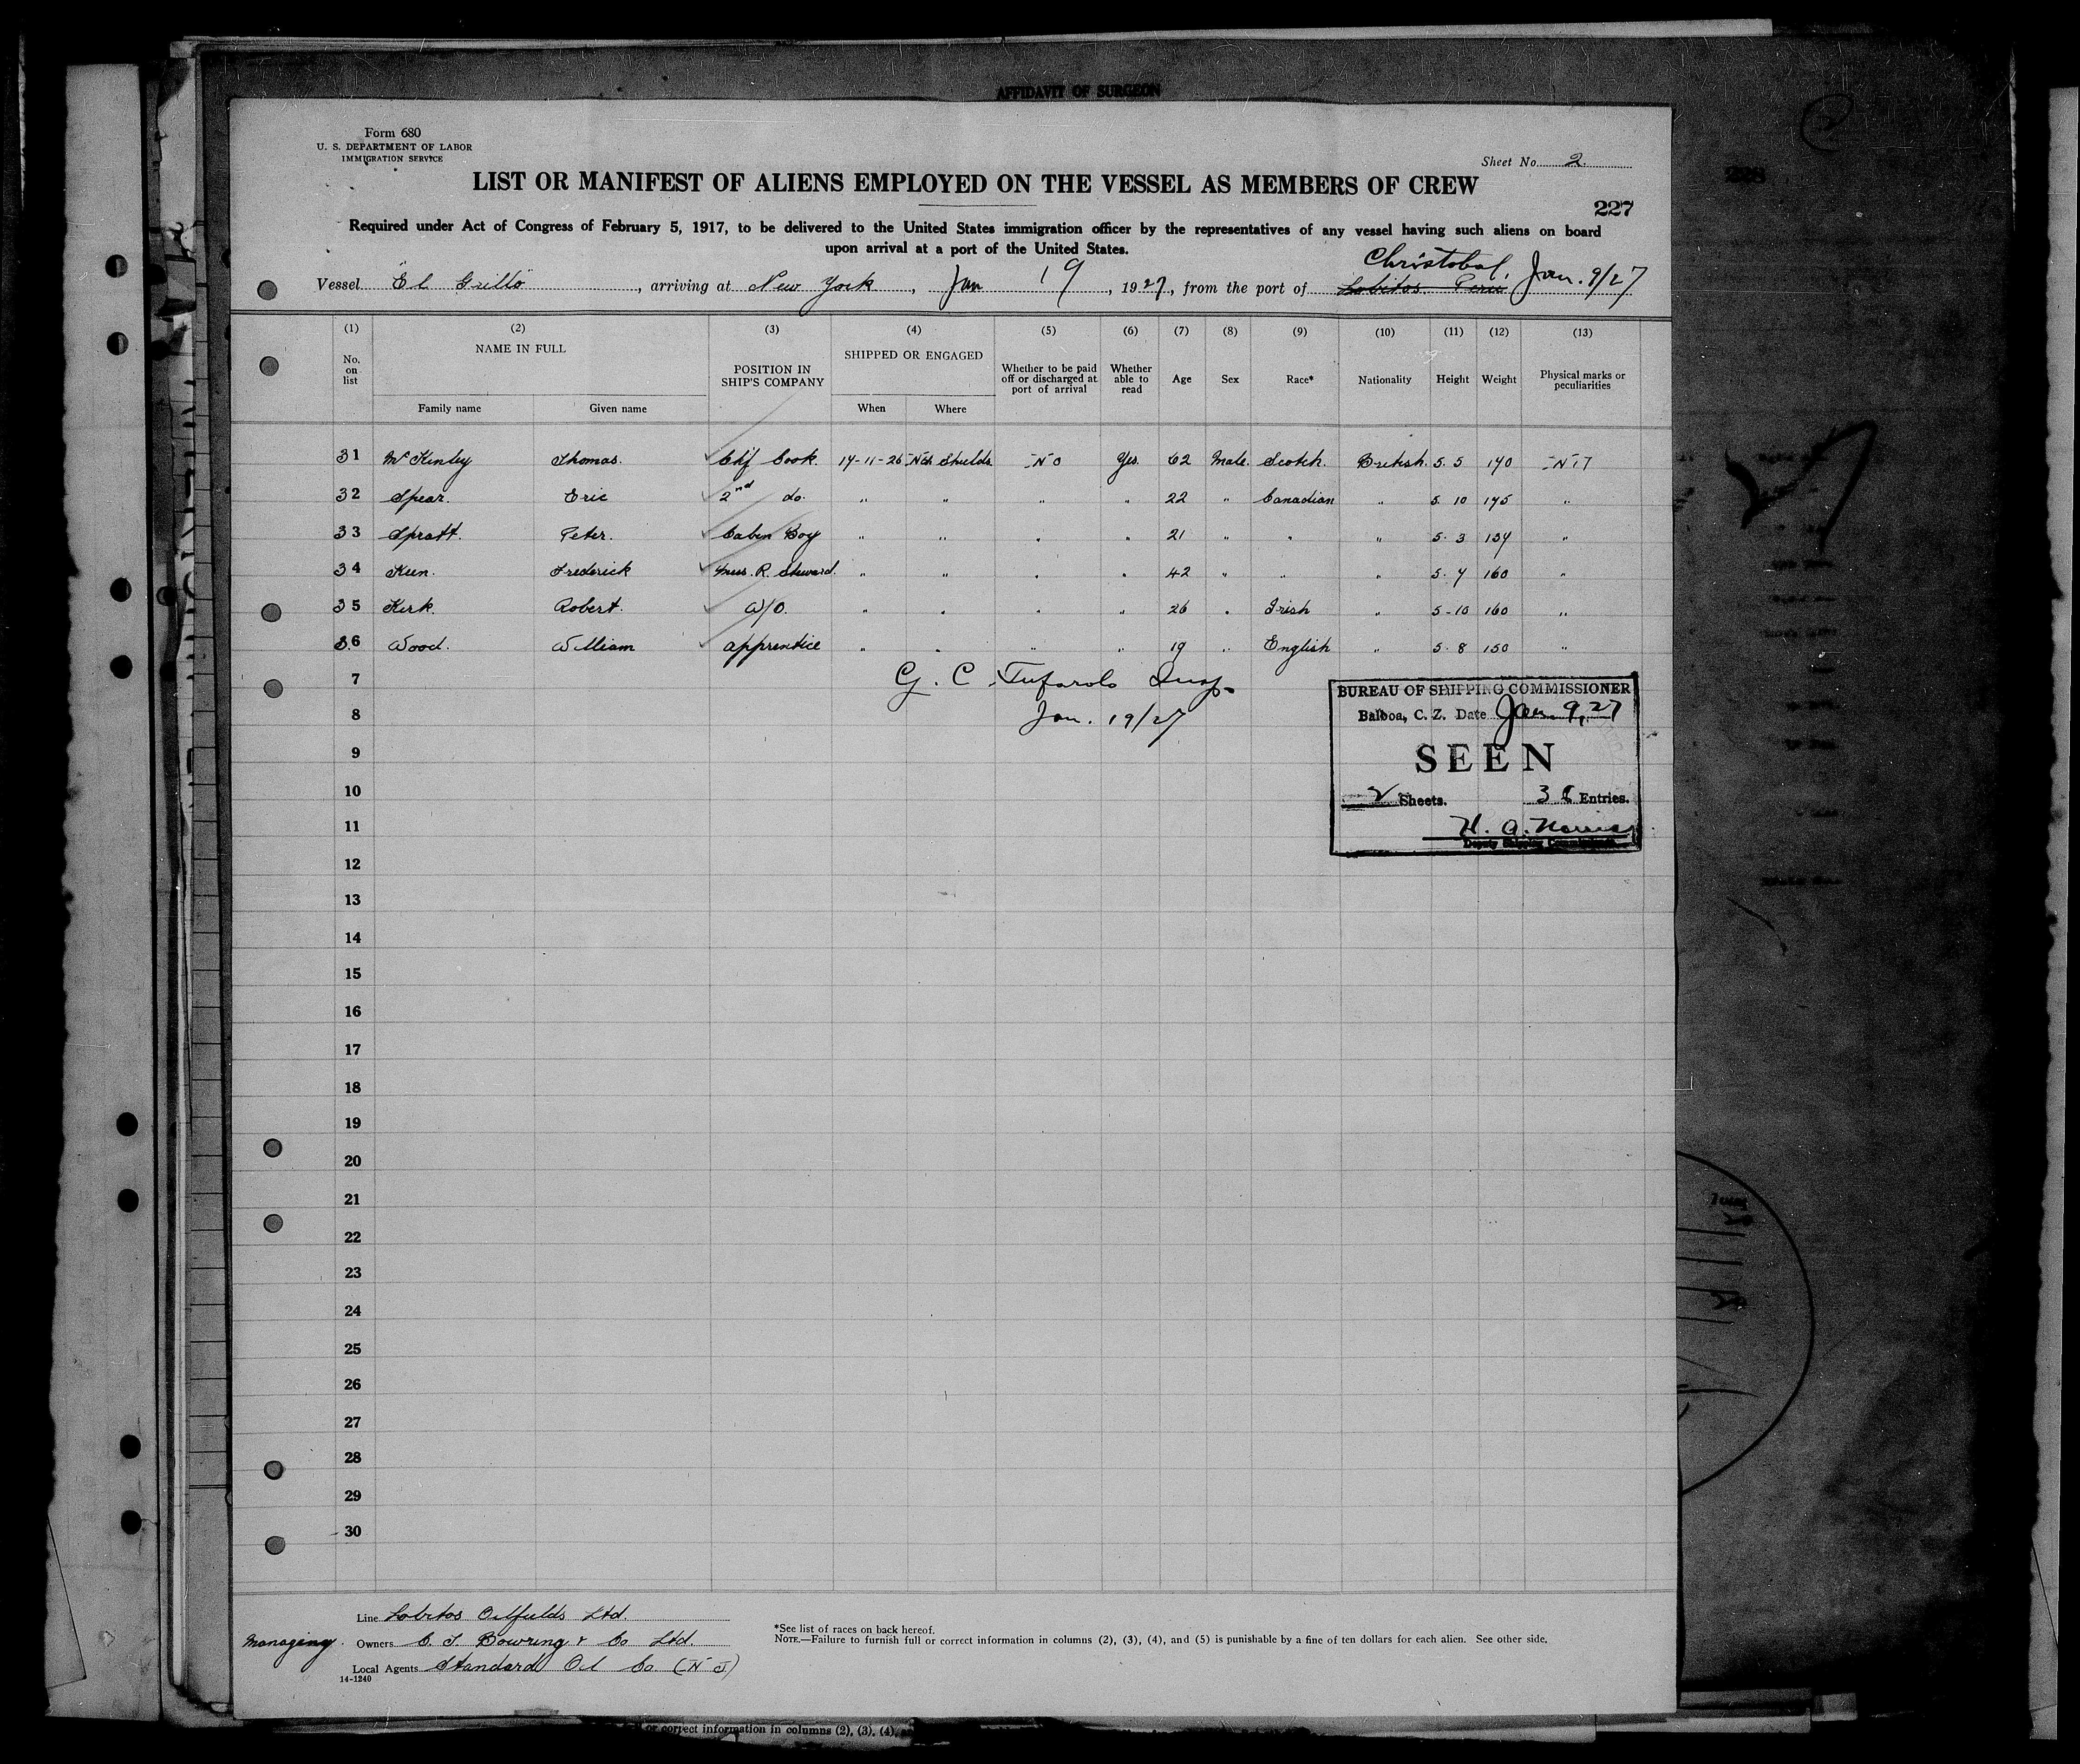 AFFIDAVIT OF SURGEON
Form 680
U. S. DEPARTMENT OF LABOR
IMMIGRATION SERVICE
Sheet No. 2.
LIST OR MANIFEST OF ALIENS EMPLOYED ON THE VESSEL AS MEMBERS OF CREW
227
Required under Act of Congress of February 5, 1917, to be delivered to the United States immigration officer by the representatives of any vessel having such aliens on board
upon arrival at a port of the United States.
Christobal, Jan. 9/27
Vessel "El Grillo", arriving at New York, Jan 19, 1927, from the port of Lobitos Peru
(1) (2) (3) (4) (5) (6) (7) (8) (9) (10) (11) (12) (13)
No. on list NAME IN FULL POSITION IN SHIP'S COMPANY SHIPPED OR ENGAGED Whether to be paid off or discharged at port of arrival Whether able to read Age Sex Race* Nationality Height Weight Physical marks or peculiarities
Family name Given name When Where
31 McKinley Thomas. Chf Cook. 14-11-26 Nth Shields No Yes. 62 Male. Scotch. British. 5. 5 140 Nil
32 Spear. Eric 2nd do. " " " " 22 " Canadian " 5. 10 145 "
33 Spratt. Peter. Cabin Boy " " " " 21 " " " 5. 3 134 "
34 Keen. Frederick Mess. R. Steward. " " " " 42 " " " 5. 4 160 "
35 Kirk. Robert. " " " " 26 " Irish " 5-10 160 "
36 Wood. William apprentice " " " " 19 " English " 5. 8 150 "
7 G. C. Tufarolo Insp.
8 Jan. 19/27
BUREAU OF SHIPPING COMMISSIONER
Balboa, C. Z. Date Jan. 9, 27
SEEN
2 Sheets. Entries.
H. A.
Deputy Shipping Commissioner
9
10
11
12
13
14
15
16
17
18
19
20
21
22
23
24
25
26
27
28
29
30
Line Lobitos Oilfields Ltd.
Managing. Owners C. T. Bowring & Co Ltd.
Local Agents Standard Oil Co. (N J)
14-1240
*See list of races on back hereof.
NOTE.—Failure to furnish full or correct information in columns (2), (3), (4), and (5) is punishable by a fine of ten dollars for each alien. See other side.
or correct information in columns (2), (3), (4),